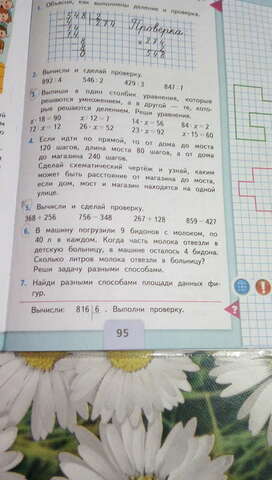 1. Объясни, как выполнены деление и проверка.
548 2
4 274
14
14
8
8
0
Проверка
274
2
548
2. Вычисли и сделай проверку.
892 : 4 546 : 2 429 : 3 847 : 7
3. Выпиши в один столбик уравнения, которые
решаются умножением, а в другой — те, кото-
рые решаются делением. Реши уравнения.
x · 18 = 90 x : 12 = 7 14 · x = 56 84 : x = 2
72 : x = 12 26 · x = 52 23 · x = 92 x : 15 = 60
4. Если идти по прямой, то от дома до моста
120 шагов, длина моста 80 шагов, а от дома
до магазина 240 шагов.
Сделай схематический чертёж и узнай, каким
может быть расстояние от магазина до моста,
если дом, мост и магазин находятся на одной
улице.
5. Вычисли и сделай проверку.
368 + 256 756 − 348 267 + 128 859 − 427
6. В машину погрузили 9 бидонов с молоком, по
40 л в каждом. Когда часть молока отвезли в
детскую больницу, в машине осталось 4 бидона.
Сколько литров молока отвезли в больницу?
Реши задачу разными способами.
7. Найди разными способами площади данных фи-
гур.
Вычисли: 816 6 . Выполни проверку.
?
95